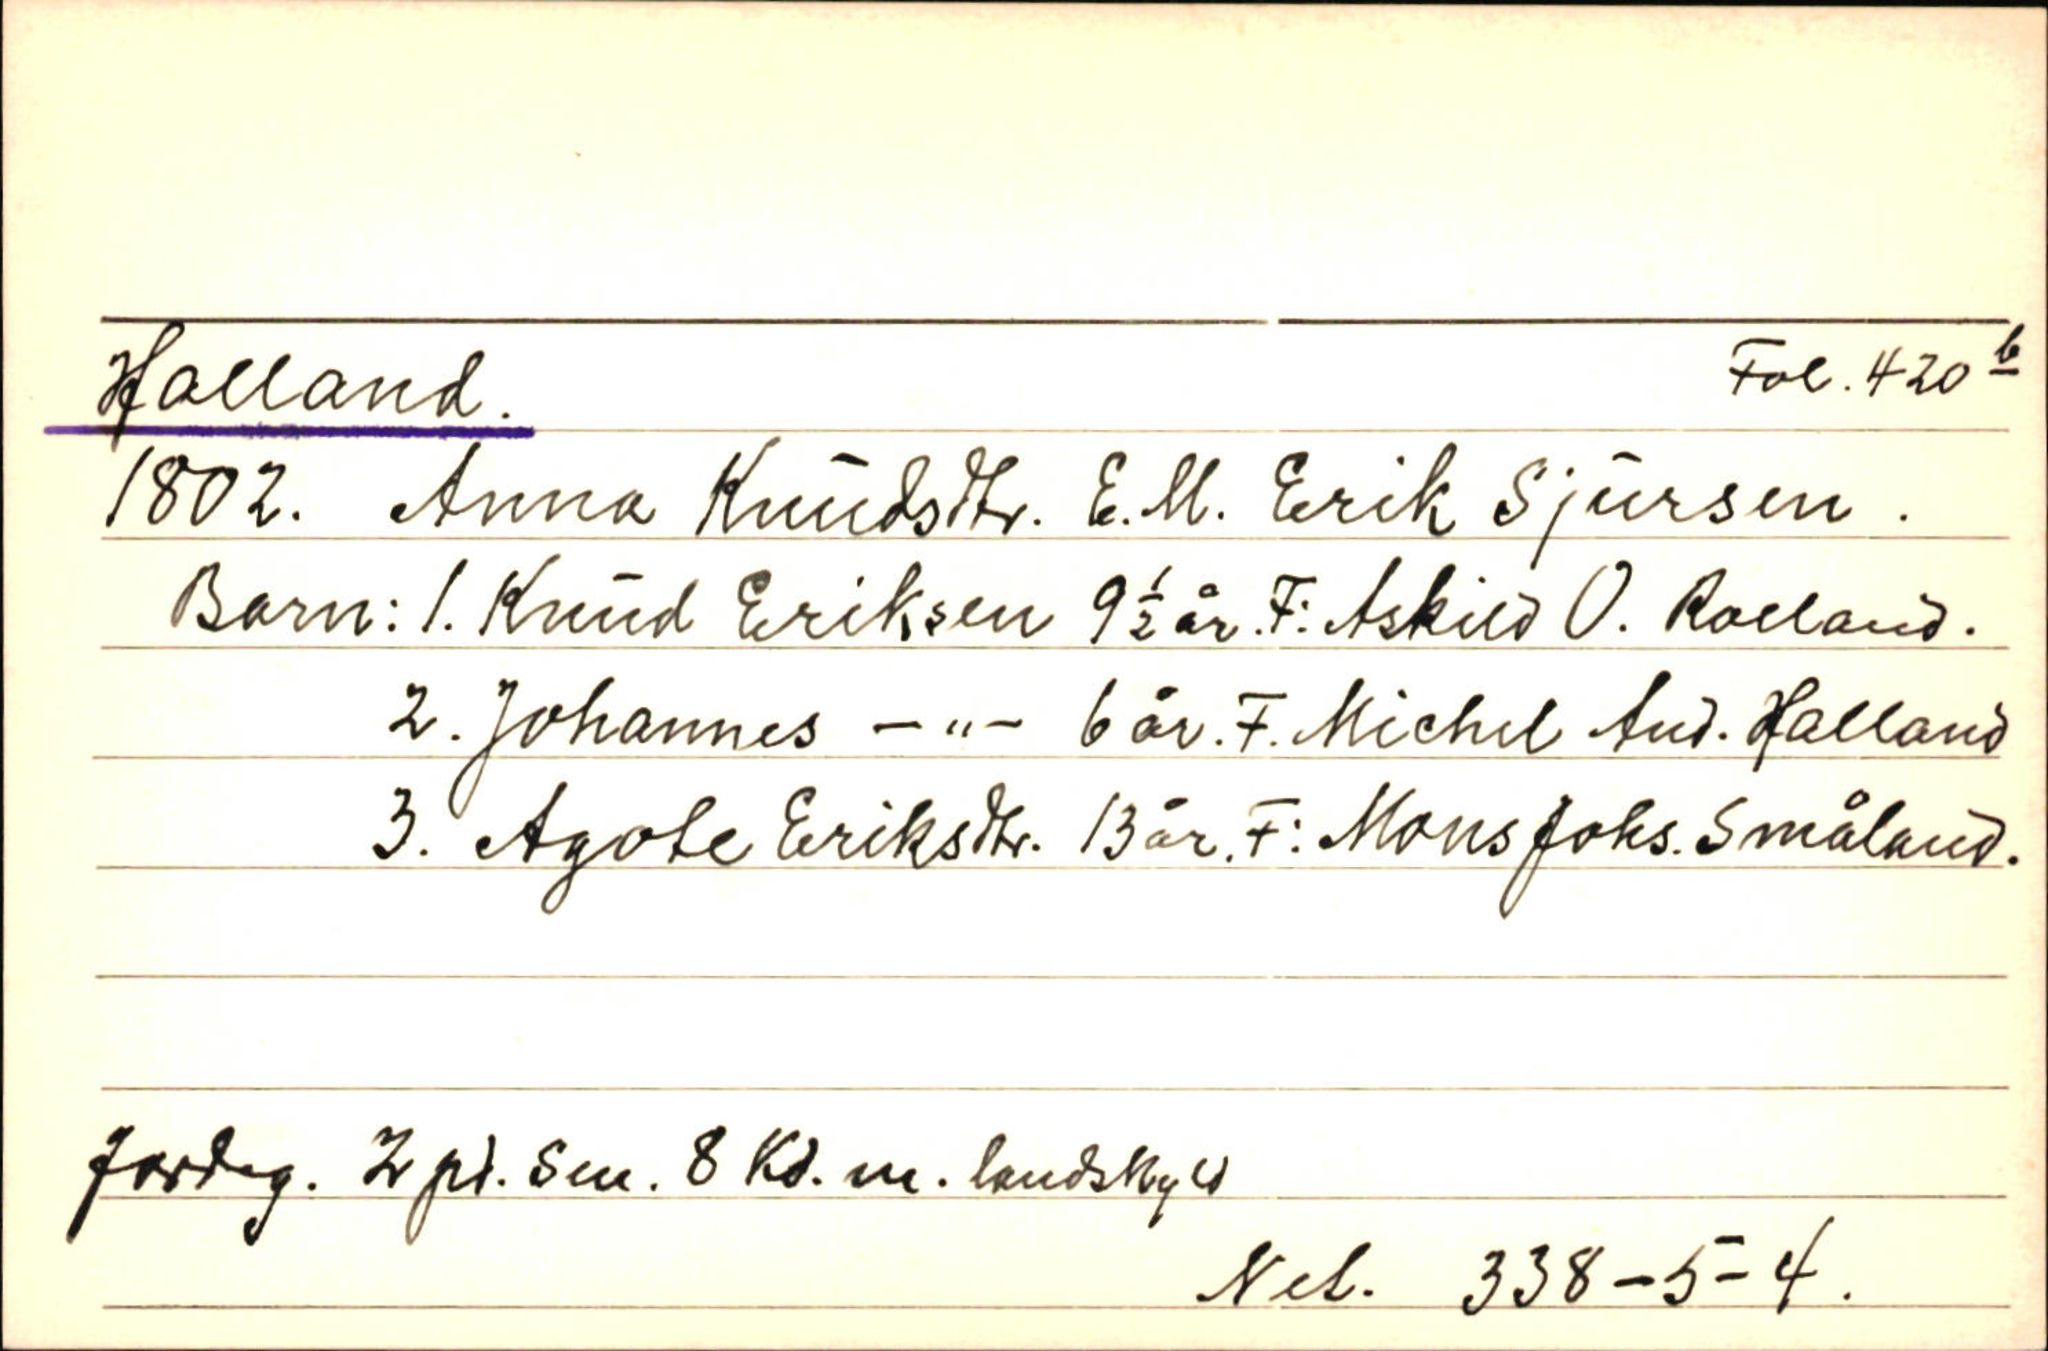 Halland. Fol. 420 b
1802. Anna Knudsdtr. E.M. Erik Sjursen.
Barn: 1. Knud Eriksen 9½ år. F: Askild O. Rolland.
2. Johannes —"— 6 år. F. Michel And. Halland
3. Agote Eriksdtr. 13 år. F: Mons Johs. Småland.
Jordeg. 2 pd. Sm. 8 Kd. m. landskyld
Net. 338-5-4.